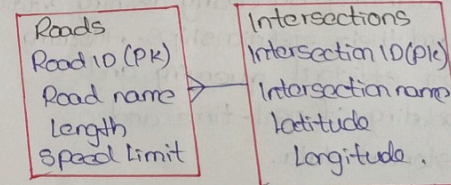 Roads
Road ID (PK)
Road name
Length
Speed Limit
Intersections
Intersection ID(PK)
Intersection name
Latitude
Longitude.